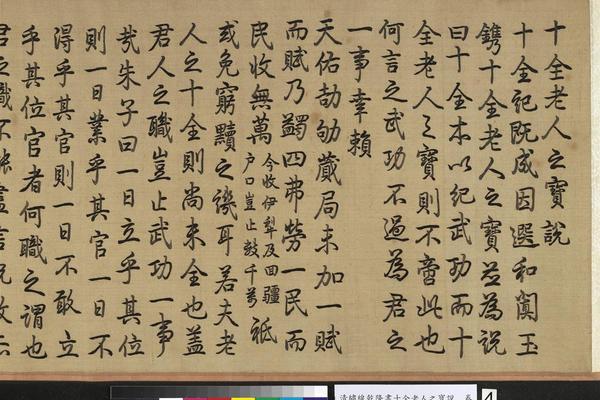 十全老人之寶說
十全記既成因選和闐玉
鐫十全老人之寶並為說
曰十全本以紀武功而十
全老人之寶則不啻此也
何言之武功不過為君之
一事幸賴
天佑劼劬蕆局未加一賦
而賦乃蠲四弗勞一民而
民收無萬今收伊犁及回疆戶口豈止數千萬祗
或免窮黷之譏耳若夫老
人之十全則尚未全也蓋
君人之職豈止武功一事
哉朱子曰一日立乎其位
則一日業乎其官一日不
得乎其官則一日不敢立
乎其位官者何職之謂也
君之職不
清緙絲乾隆書十全老人之寶說 卷
4